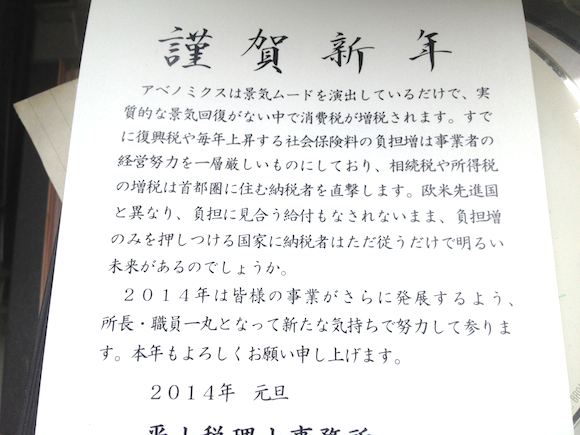 謹賀新年
アベノミクスは景気ムードを演出しているだけで、実
質的な景気回復がない中で消費税が増税されます。すで
に復興税や毎年上昇する社会保険料の負担増は事業者の
経営努力を一層厳しいものにしており、相続税や所得税
の増税は首都圏に住む納税者を直撃します。欧米先進国
と異なり、負担に見合う給付もなされないまま、負担増
のみを押しつける国家に納税者はただ従うだけで明るい
未来があるのでしょうか。
２０１４年は皆様の事業がさらに発展するよう、
所長・職員一丸となって新たな気持ちで努力して参りま
す。本年もよろしくお願い申し上げます。
２０１４年 元旦
税理士事務所